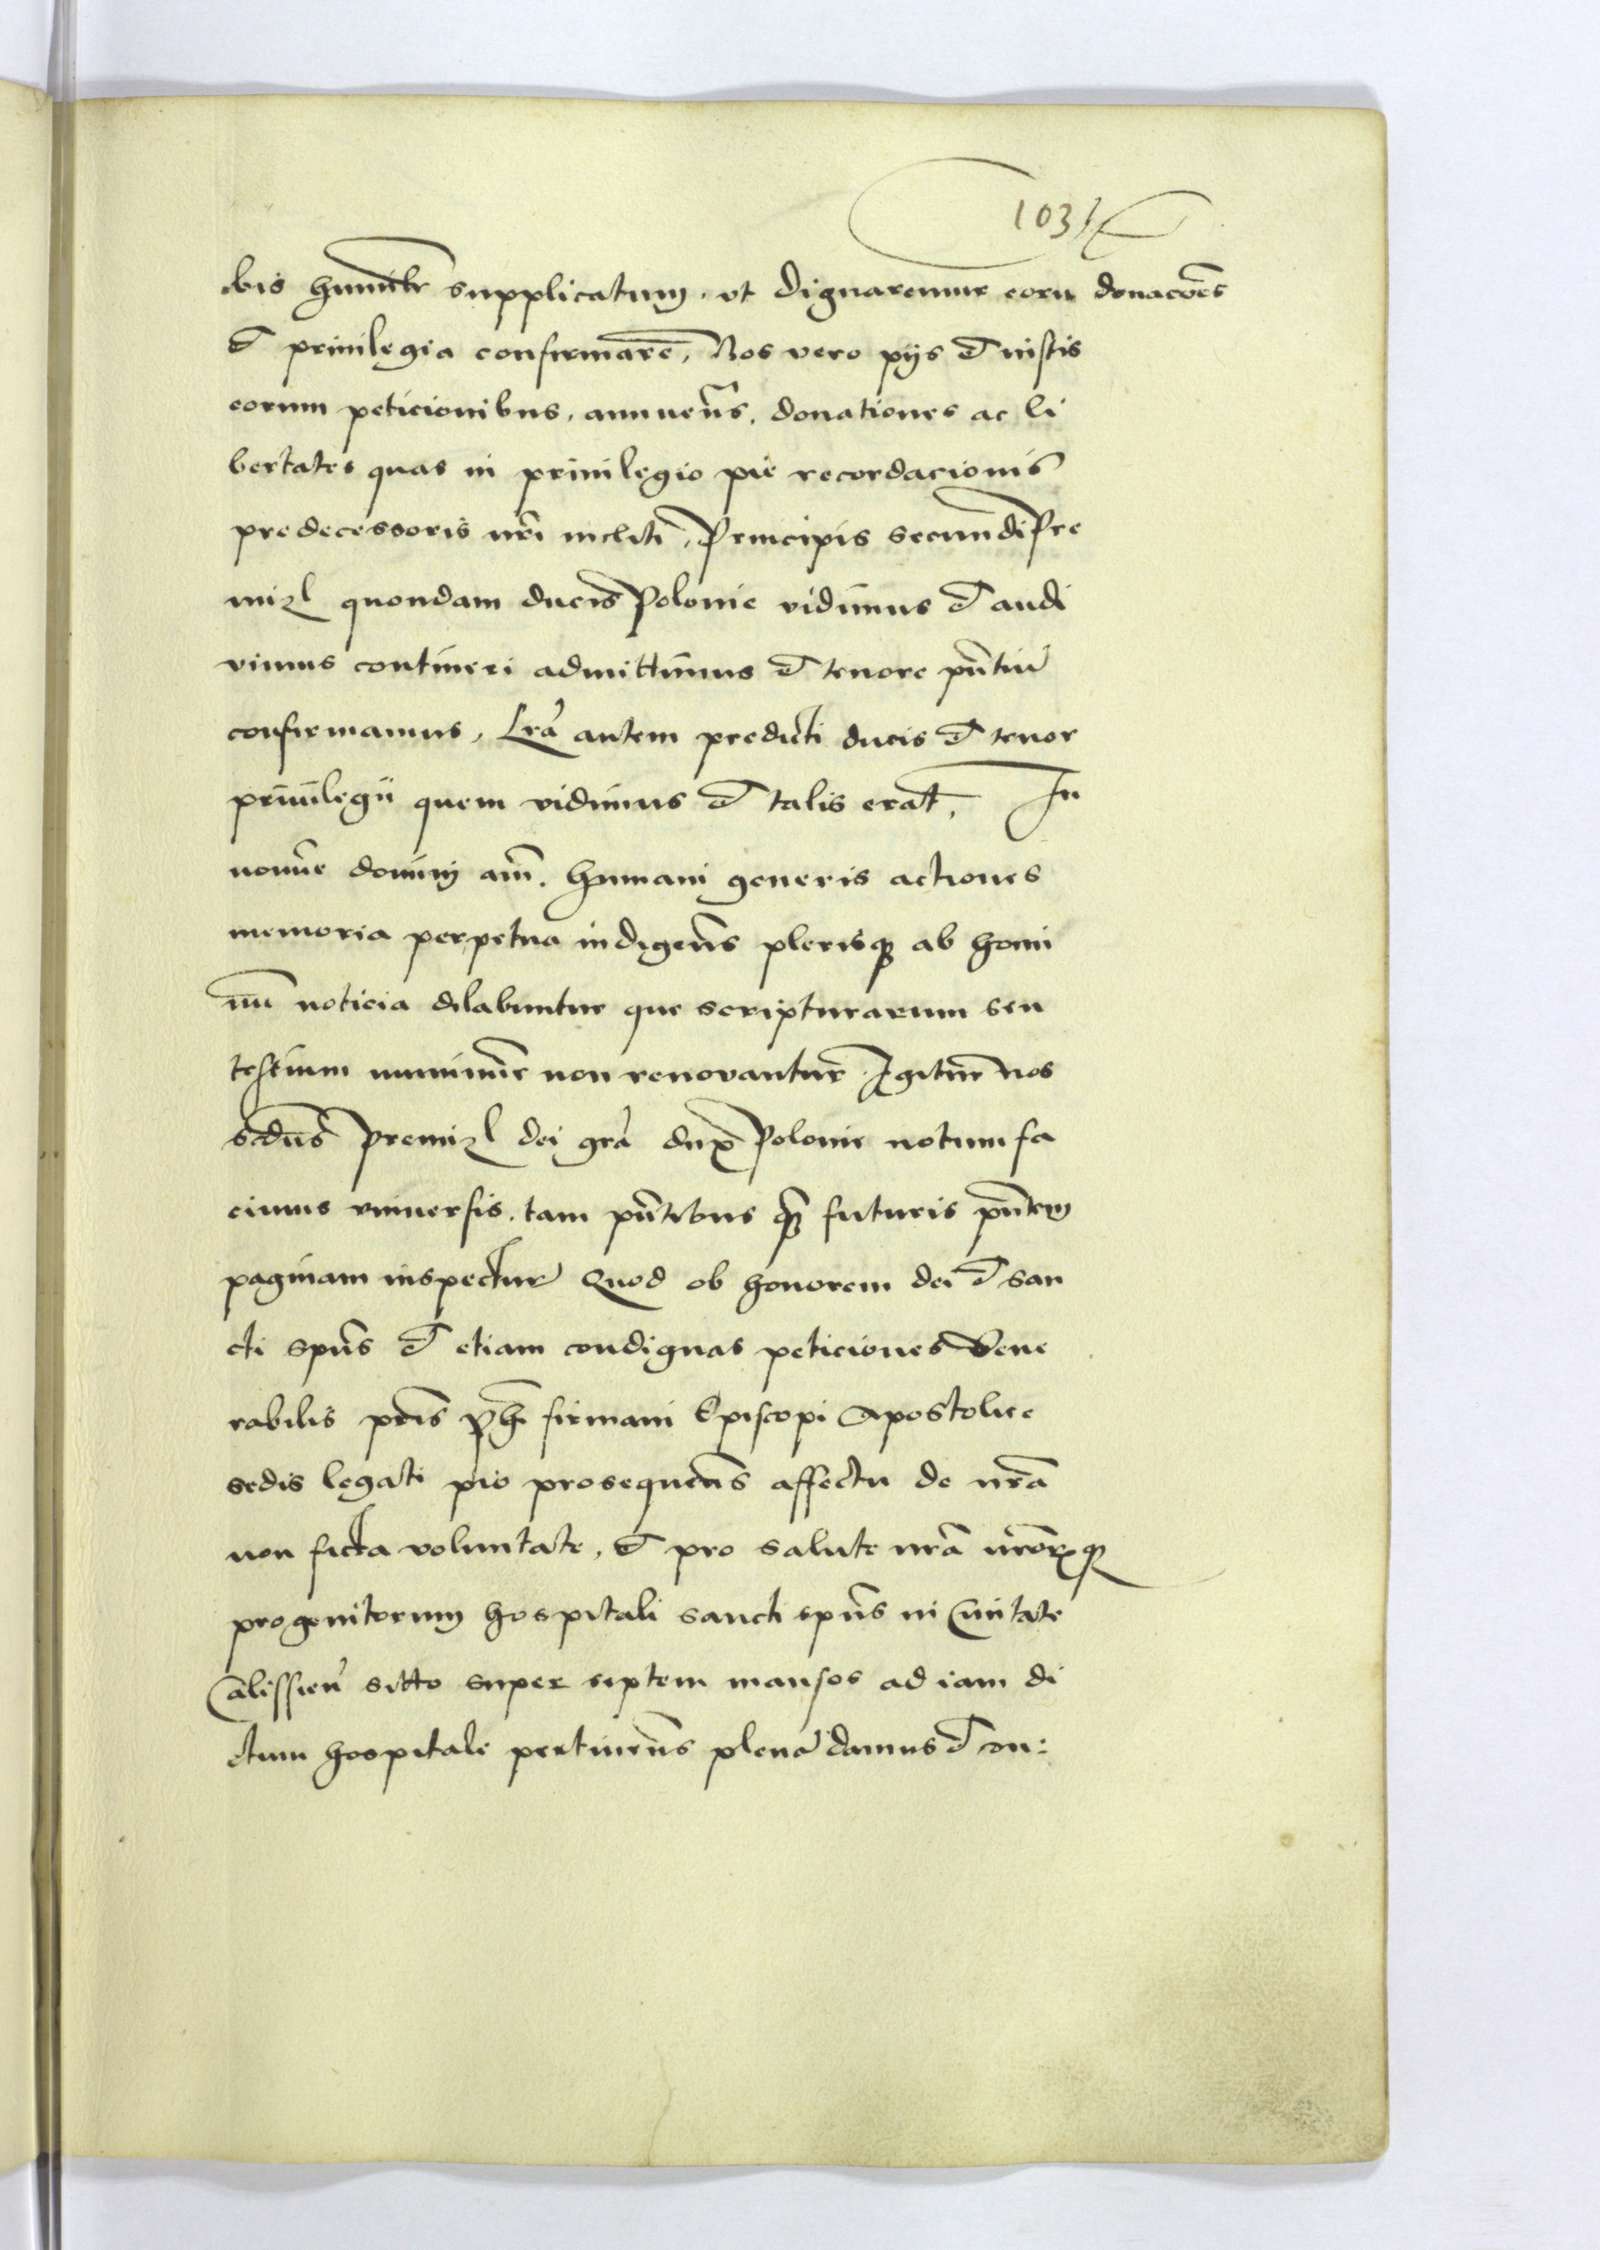 103
bis humilr̄ supplicatum. vt dignaremur eorū donacōēs
et priuilegia confirmare, Nos vero pijs et iustis
eorum peticionibus, annuen̄s, donationes ac li
bertates quas in priuilegio pie recordacionis
predecessoris nr̄i incliti, Principis secundi Pre
mizl quondam ducis Polonie vidimus et audi
vimus contineri admittimus et tenore pn̄tiū
confirmamus, Lr̄a autem predicti ducis et tenor
priuilegii quem vidimus et talis erat, In
nomīe domini am̄. humani generis actiones
memoria perpetua indigen̄s plerisq ab homi
nū noticia dilabuntur que scripturarum seu
testium munimīe non renovantur. Igitur nos
scdūs Premizl dei grā dux Polonie notum fa
cimus vniuersis, tam pn̄tibus q̄ futuris pn̄tem
paginam inspectur̄ Quod ob honorem dei et san
cti spūs et etiam condignas peticiones Vene
rabilis pr̄is ph̄i firmani Episcopi Apostolice
sedis legati pio prosequen̄s affectu de nr̄a
non ficta voluntate, et pro salute nr̄a nr̄orq
progenitorum hospitali sancti spūs in Ciuitate
Calissien̄ sitto super septem mansos ad iam di
ctum hospitale pertinen̄s plenā damus et con: